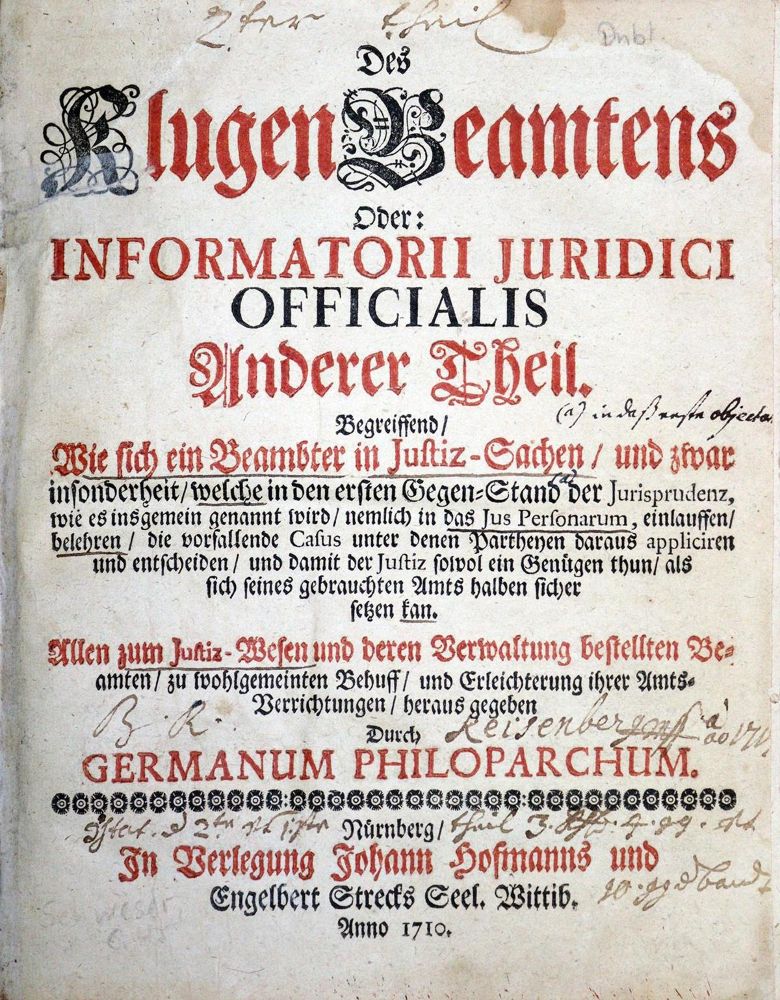 2ter theil
Des
Klugen Beamtens
Oder:
INFORMATORII JURIDICI
OFFICIALIS
Anderer Theil.
(a) in daß erste objectum
Begreiffend/
Wie sich ein Beambter in Justiz-Sachen / und zwar
insonderheit/ welche in den ersten Gegen-Stand (a) der Jurisprudenz,
wie es insgemein genannt wird/ nemlich in das Jus Personarum, einlauffen/
belehren / die vorfallende Casus unter denen Partheyen daraus appliciren
und entscheiden / und damit der Justiz sowol ein Genügen thun/ als
sich seines gebrauchten Amts halben sicher
setzen kan.
Allen zum Justiz-Wesen und deren Verwaltung bestellten Be-
amten/ zu wohlgemeinten Behuff/ und Erleichterung ihrer Amts-
Verrichtungen/ heraus gegeben
B. R.
Durch
GERMANUM PHILOPARCHUM.
Nürnberg/ theil
In Verlegung Johann Hofmanns und
Engelbert Strecks Seel. Wittib.
Anno 1710.